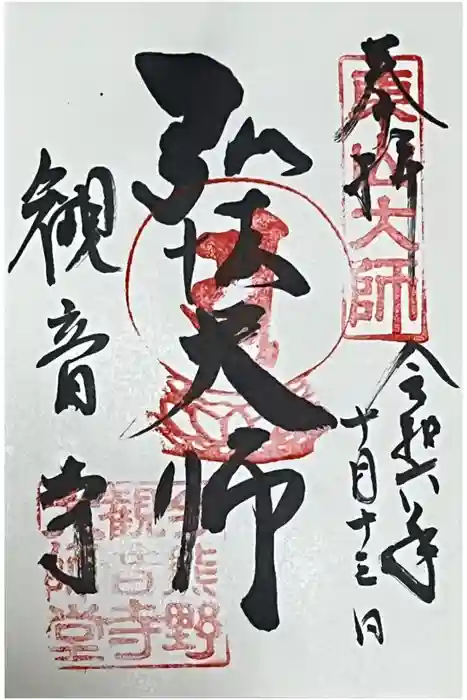 奉拝
東山大師
令和六年
十月十三日
弘法大師
観音寺
今熊野
観音寺
大師堂